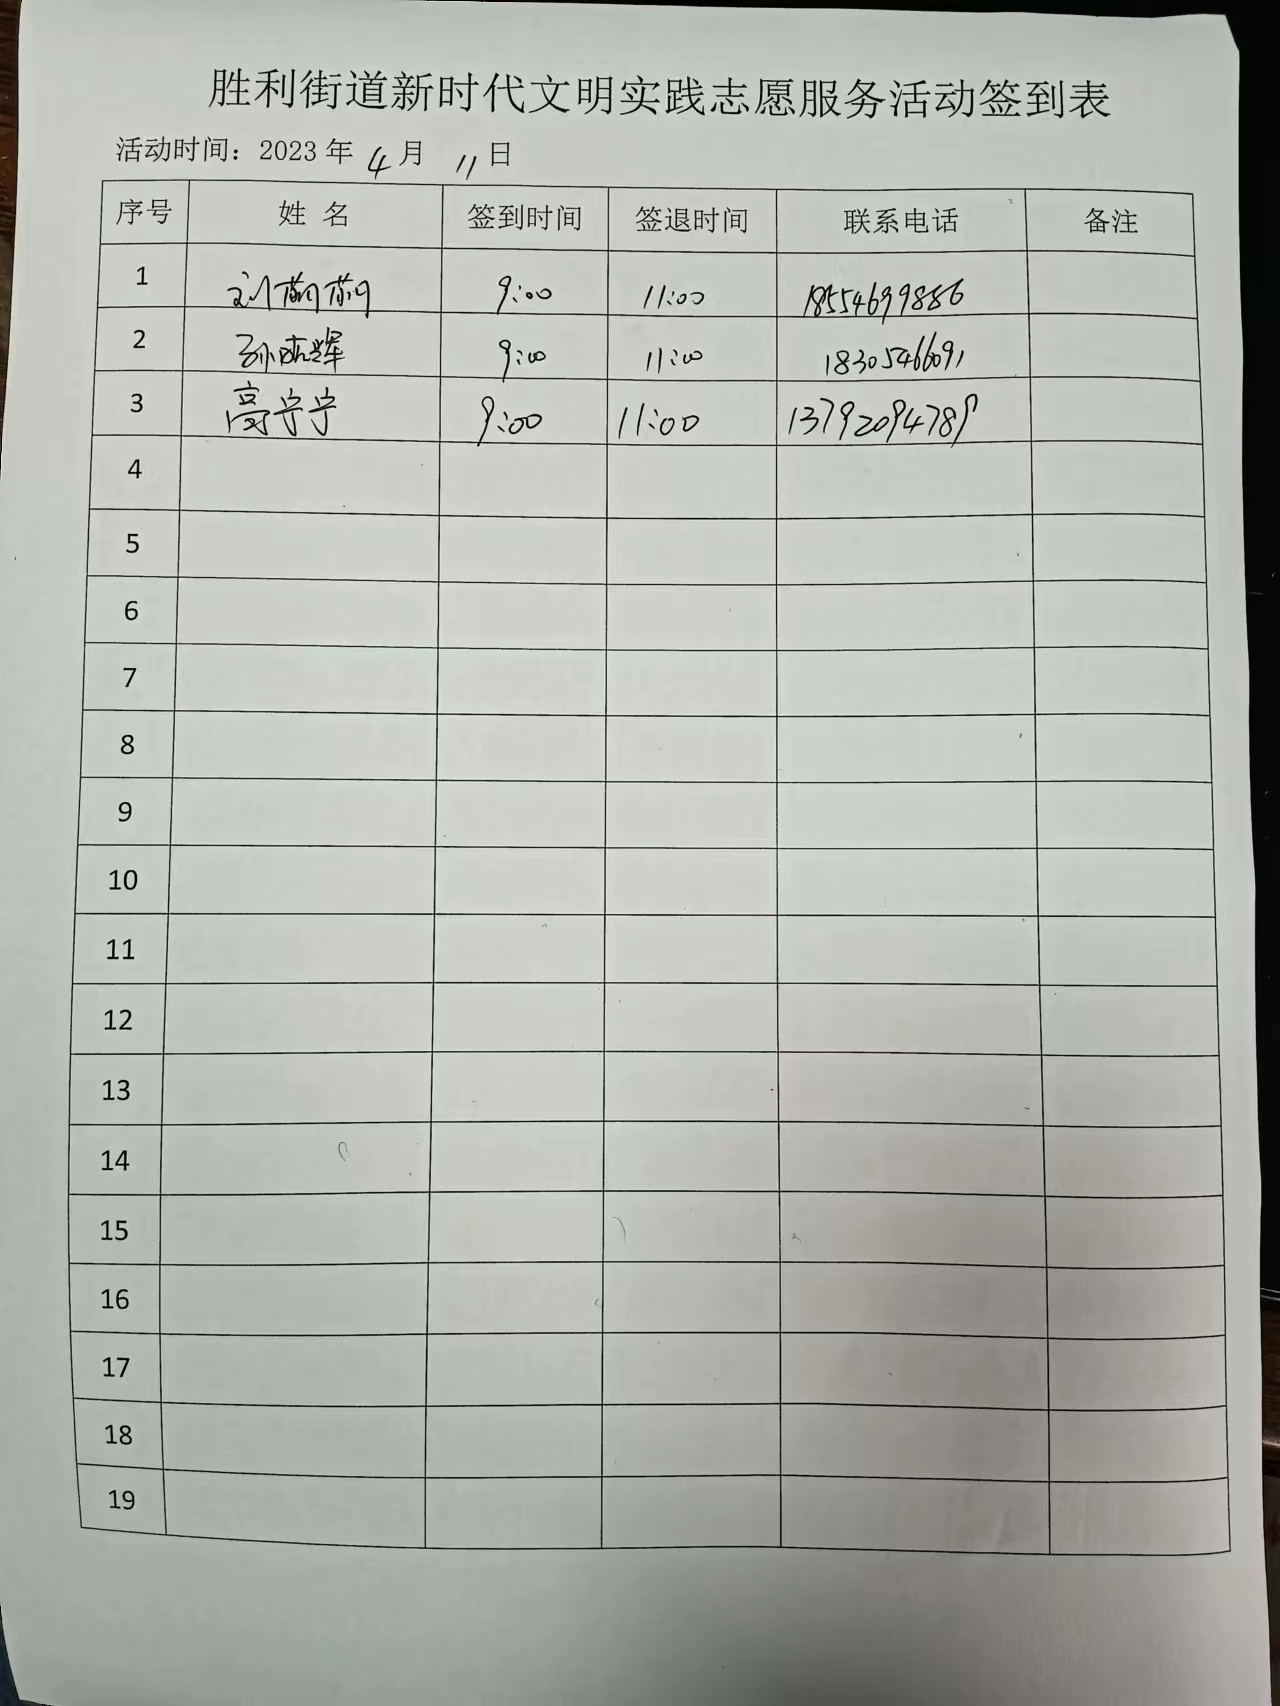 胜利街道新时代文明实践志愿服务活动签到表
活动时间：2023 年 4 月 11 日
序号 姓 名 签到时间 签退时间 联系电话 备注
1 刘萌萌 9:00 11:00 18554699886
2 孙 辉 9:00 11:00 18305466091
3 高宁宁 9:00 11:00 13792094789
4
5
6
7
8
9
10
11
12
13
14
15
16
17
18
19